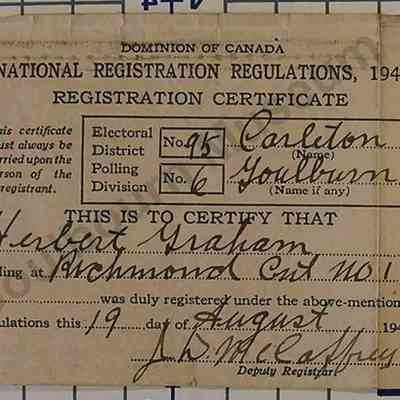 DOMINION OF CANADA
NATIONAL REGISTRATION REGULATIONS, 194
REGISTRATION CERTIFICATE
his certificate
ust always be
rried upon the
rson of the
registrant.
Electoral District No. 95 Carleton
(Name)
Polling Division No. 6 Goulburn
(Name if any)
THIS IS TO CERTIFY THAT
Herbert Graham
ding at Richmond Cnt No 1
was duly registered under the above-mention
ulations this 19 day of August 194
J D McCaffrey
Deputy Registrar